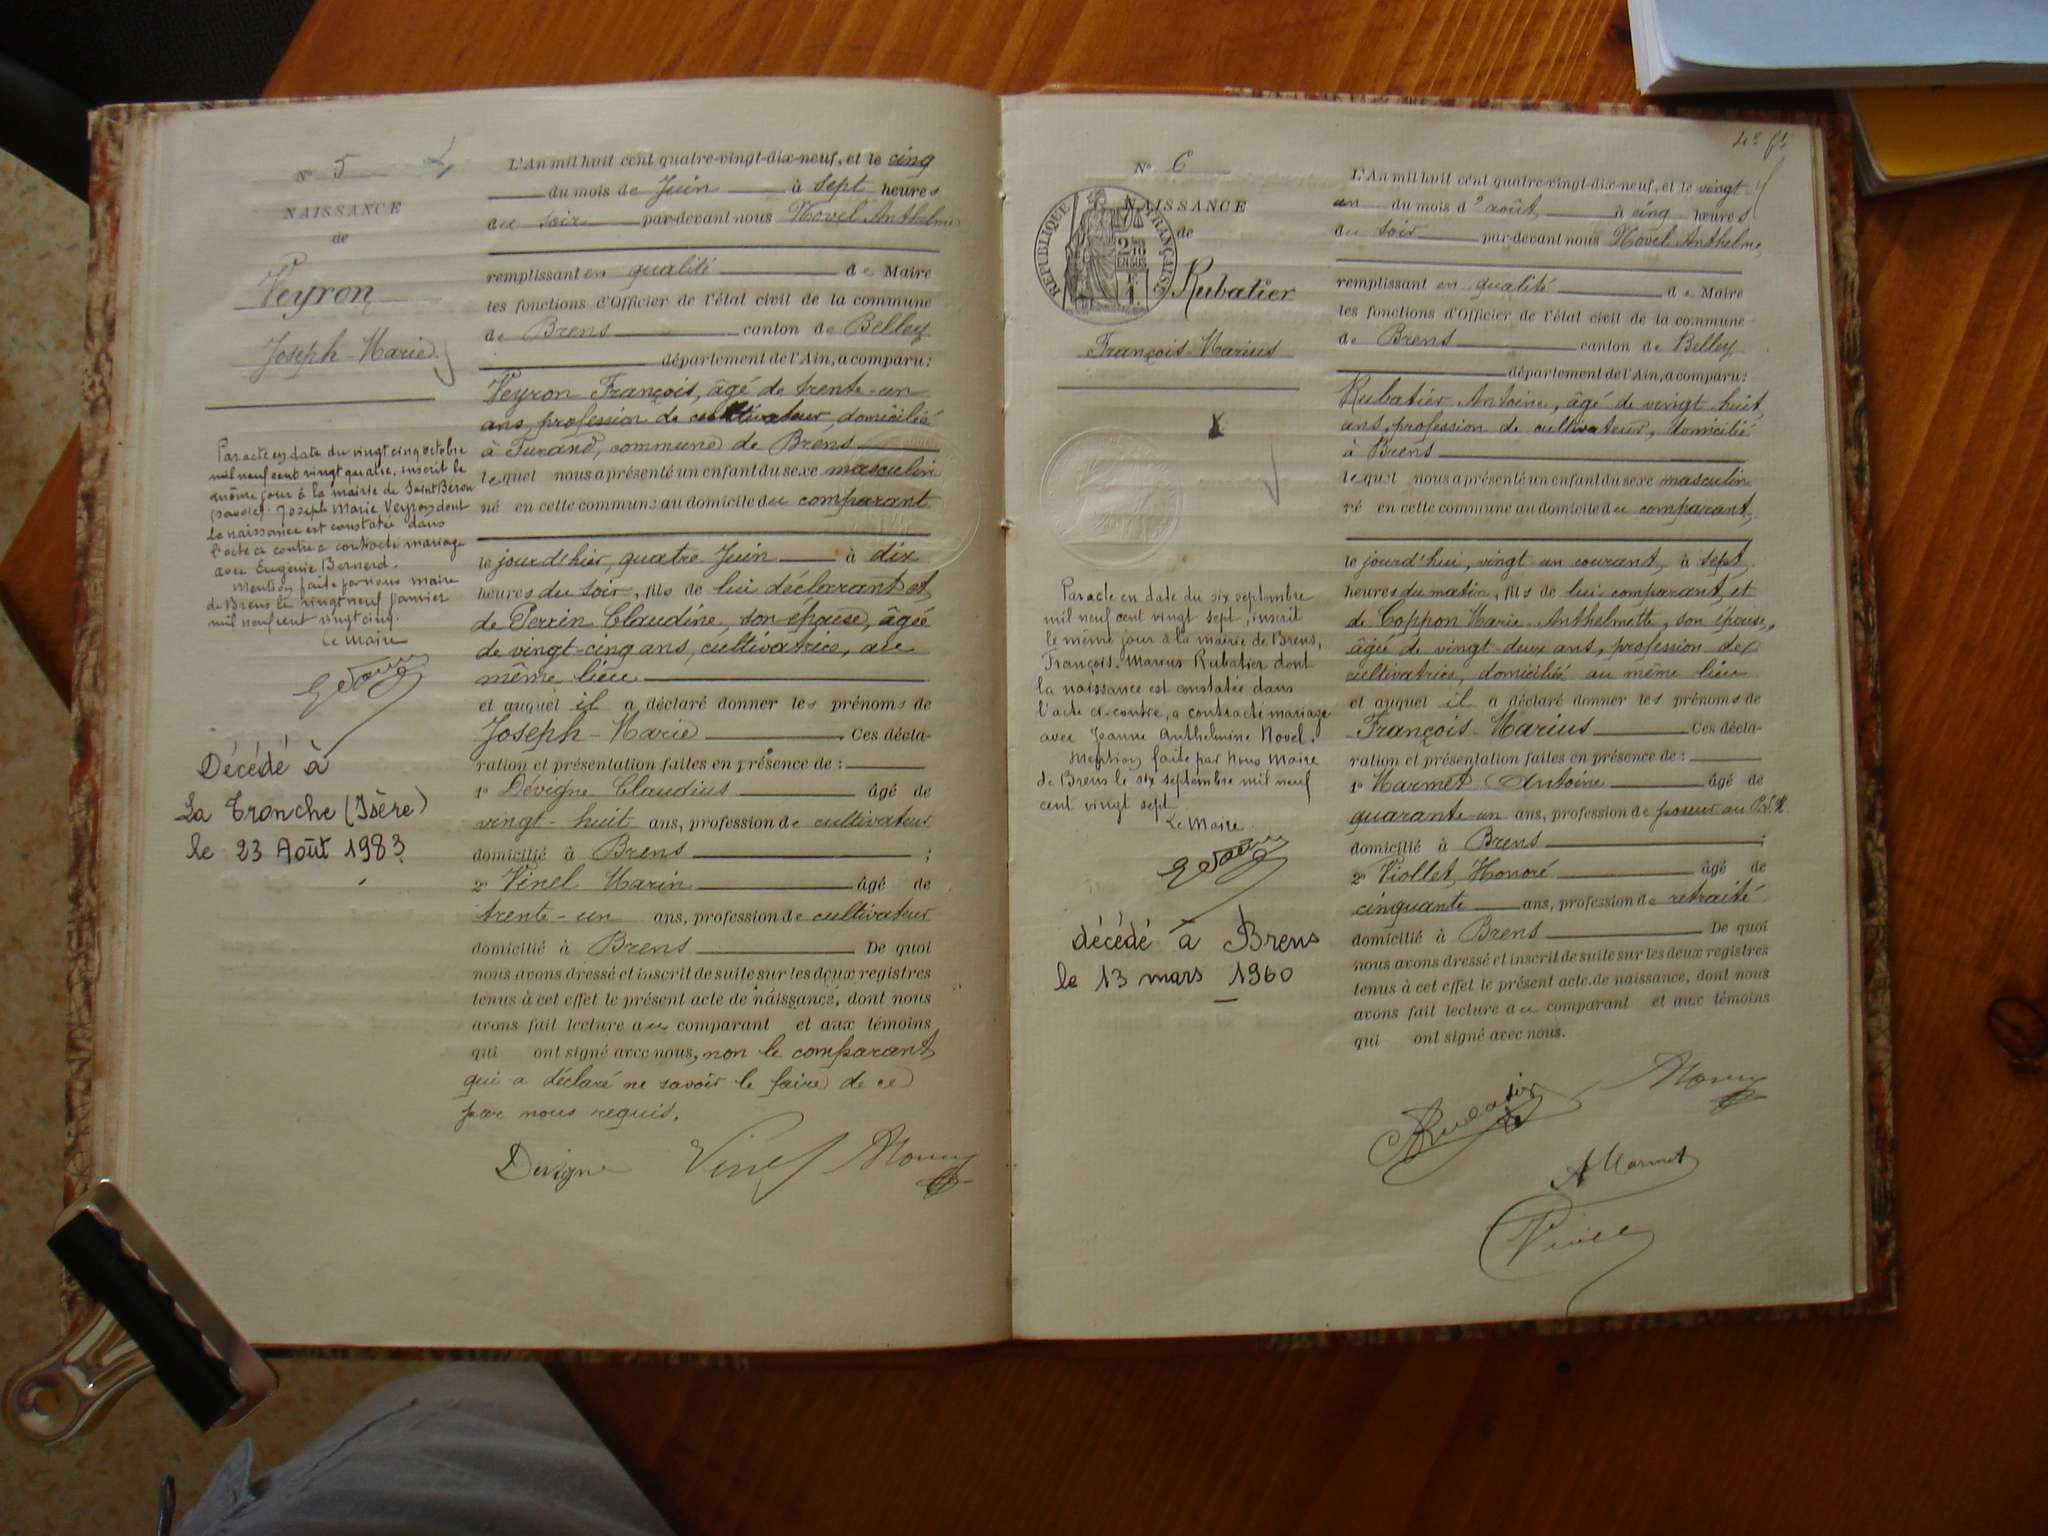 N° 5
NAISSANCE
de
Veyron
Joseph-Marie
Par acte en date du vingt cinq octobre
mil neuf cent vingt quatre, inscrit le
même jour à la mairie de Saint Béron
(Savoie). Joseph Marie Veyron dont
la naissance est constatée dans
l'acte ci contre a contracté mariage
avec Eugénie Bernerd.
Mention faite par nous maire
de Brens le vingt neuf janvier
mil neuf cent vingt cinq.
Le Maire
Décédé à
La Tronche (Isère)
le 23 Août 1983
L'An mil huit cent quatre-vingt-dix-neuf, et le cinq
du mois de Juin à sept heures
du soir par-devant nous Novel Anthelme
remplissant en qualité de Maire
les fonctions d'Officier de l'état civil de la commune
de Brens canton de Belley
département de l'Ain, a comparu:
Veyron François, âgé de trente-un
ans, profession de cultivateur, domicilié
à Furand, commune de Brens
lequel nous a présenté un enfant du sexe masculin
né en cette commune au domicile du comparant
le jour d'hier, quatre Juin à dix
heures du soir, fils de lui déclarant et
de Perrin Claudine, son épouse, âgée
de vingt-cinq ans, cultivatrice, au
même lieu
et auquel il a déclaré donner les prénoms de
Joseph-Marie Ces décla-
ration et présentation faites en présence de:
1° Dévigne Claudius âgé de
vingt-huit ans, profession de cultivateur
domicilié à Brens ;
2° Vinel Marin âgé de
trente-un ans, profession de cultivateur
domicilié à Brens De quoi
nous avons dressé et inscrit de suite sur les deux registres
tenus à cet effet le présent acte de naissance, dont nous
avons fait lecture au comparant et aux témoins
qui ont signé avec nous, non le comparant
qui a déclaré ne savoir le faire de ce
par nous requis.
Devigne Vinel
N° 6
NAISSANCE
de
RÉPUBLIQUE FRANÇAISE
Rubatier
François-Marius
Par acte en date du six septembre
mil neuf cent vingt sept, inscrit
le même jour à la mairie de Brens,
François-Marius Rubatier dont
la naissance est constatée dans
l'acte ci-contre, a contracté mariage
avec Jeanne Anthelmine Novel.
Mention faite par Nous Maire
de Brens le six septembre mil neuf
cent vingt sept
Le Maire
décédé à Brens
le 13 mars 1960
L'An mil huit cent quatre-vingt-dix-neuf, et le vingt-
un du mois d'août à cinq heures
du soir par-devant nous Novel Anthelme,
remplissant en qualité de Maire
les fonctions d'Officier de l'état civil de la commune
de Brens canton de Belley
département de l'Ain, a comparu:
Rubatier Antoine, âgé de vingt huit
ans, profession de cultivateur, domicilié
à Brens
lequel nous a présenté un enfant du sexe masculin
né en cette commune au domicile du comparant,
le jour d'hui, vingt-un courant, à sept
heures du matin, fils de lui comparant, et
de Coppon Marie-Anthelmette, son épouse,
âgée de vingt-deux ans, profession de
cultivatrice, domiciliée au même lieu
et auquel il a déclaré donner les prénoms de
François-Marius Ces décla-
ration et présentation faites en présence de:
1° Marmet Antoine âgé de
quarante-un ans, profession de poseur au
domicilié à Brens ;
2° Viollet Honoré âgé de
cinquante ans, profession de retraité
domicilié à Brens De quoi
nous avons dressé et inscrit de suite sur les deux registres
tenus à cet effet le présent acte de naissance, dont nous
avons fait lecture au comparant et aux témoins
qui ont signé avec nous.
Rubatier
A Marmet